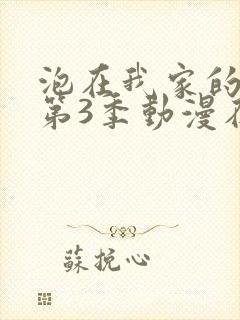 泡在我家的
第3季動漫在
蘇挽心